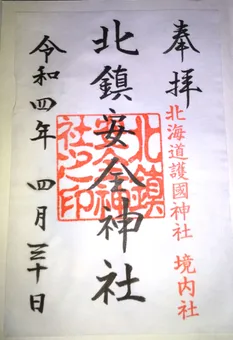 奉拝
北海道護國神社 境内社
北鎮安全神社
北鎮安全神社之印
令和四年 四月三十日